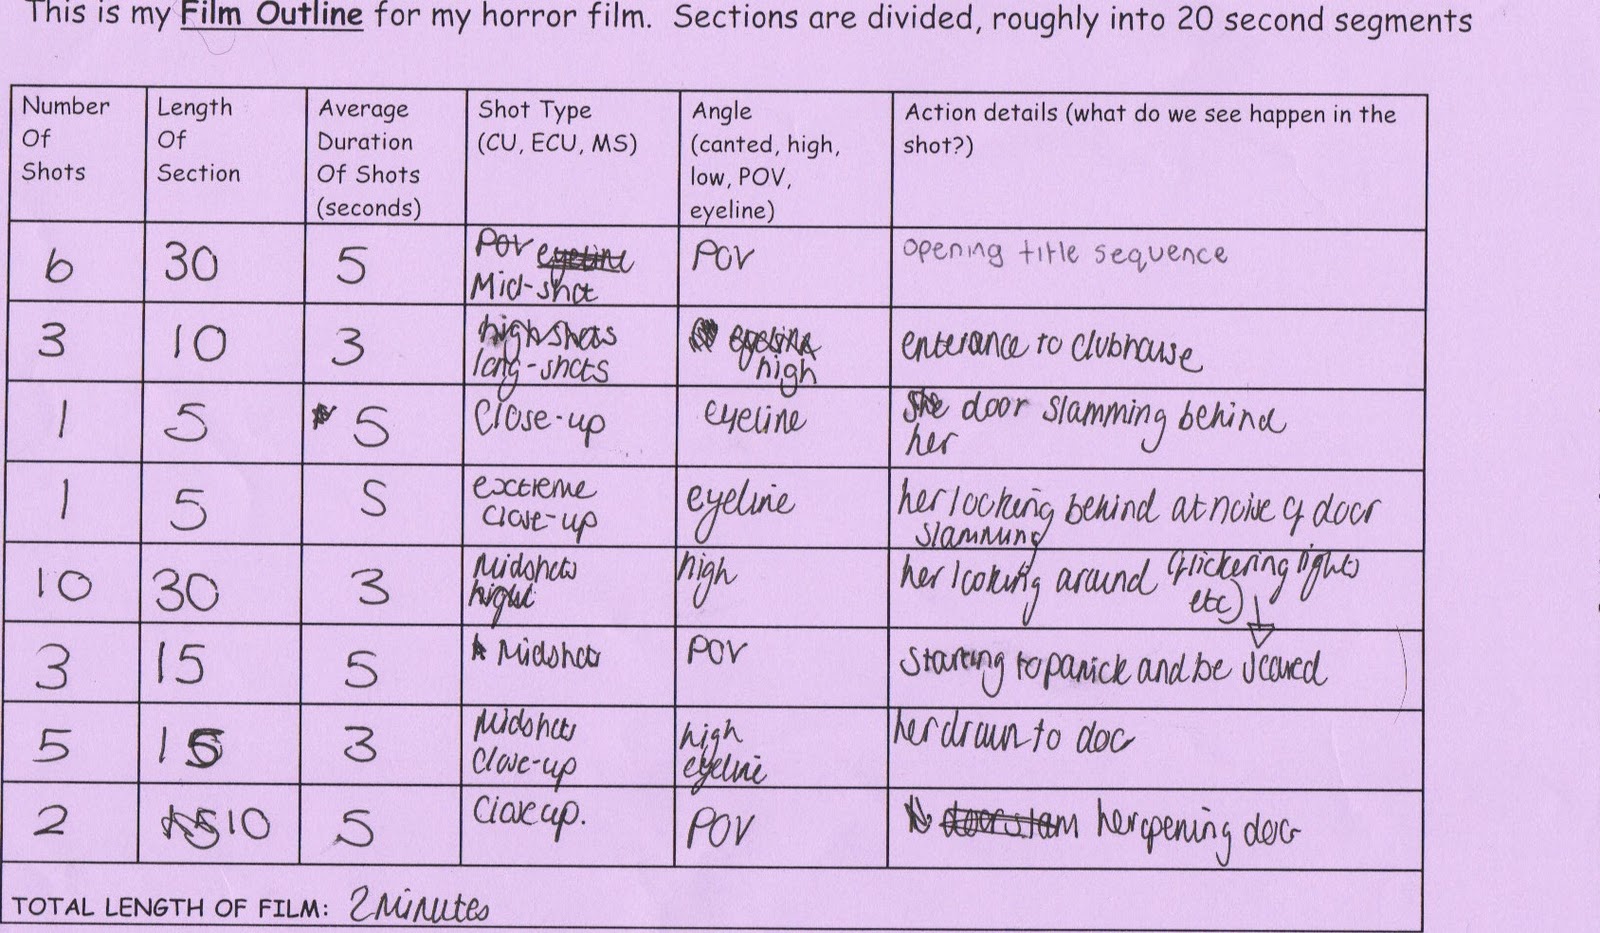 This is my Film Outline for my horror film. Sections are divided, roughly into 20 second segments
Number Of Shots | Length Of Section | Average Duration Of Shots (seconds) | Shot Type (CU, ECU, MS) | Angle (canted, high, low, POV, eyeline) | Action details (what do we see happen in the shot?)
6 | 30 | 5 | POV eyeline Mid-shot | POV | opening title sequence
3 | 10 | 3 | high shots long-shots | eyeline high | enterance to clubhouse
1 | 5 | 5 | Close-up | eyeline | She door slamming behind her
1 | 5 | 5 | extreme close-up | eyeline | her looking behind at noise of door slamming
10 | 30 | 3 | Midshots high | high | her looking around (flickering lights etc)
3 | 15 | 5 | Midshots | POV | starting to panick and be scared
5 | 15 | 3 | Midshots close-up | high eyeline | her drawn to door
2 | 15 10 | 5 | Close up. | POV | door slam her opening door
TOTAL LENGTH OF FILM: 2 Minutes